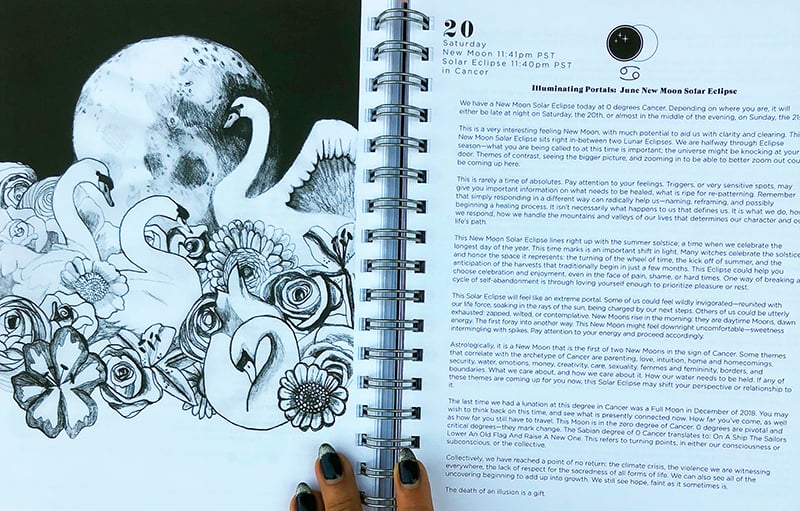 20
Saturday
New Moon 11:41pm PST
Solar Eclipse 11:40pm PST
in Cancer
♋
Illuminating Portals: June New Moon Solar Eclipse
We have a New Moon Solar Eclipse today at 0 degrees Cancer. Depending on where you are, it will
either be late at night on Saturday, the 20th, or almost in the middle of the evening, on Sunday, the
This is a very interesting feeling New Moon, with much potential to aid us with clarity and clearing.
New Moon Solar Eclipse sits right in-between two Lunar Eclipses. We are halfway through Eclipse
season—what you are being called to at this time is important; the universe might be knocking at your
door. Themes of contrast, seeing the bigger picture, and zooming in to be able to better zoom out
be coming up here.
This is rarely a time of absolutes. Pay attention to your feelings. Triggers, or very sensitive spots, may
give you important information on what needs to be healed, what is ripe for re-patterning. Remember
that simply responding in a different way can radically help us—naming, reframing, and possibly
beginning a healing process. It isn't necessarily what happens to us that defines us. It is what we do,
we respond, how we handle the mountains and valleys of our lives that determines our character and
life's path.
This New Moon Solar Eclipse lines right up with the summer solstice, a time when we celebrate the
longest day of the year. This time marks an important shift in light. Many witches celebrate the solstice
and honor the space it represents: the turning of the wheel of time, the kick off of summer, and the
anticipation of the harvests that traditionally begin in just a few months. This Eclipse could help you
choose celebration and enjoyment, even in the face of pain, shame, or hard times. One way of breaking a
cycle of self-abandonment is through loving yourself enough to prioritize pleasure or rest.
This Solar Eclipse will feel like an extreme portal. Some of us could feel wildly invigorated—reunited with
our life force, soaking in the rays of the sun, being charged by our next steps. Others of us could be utterly
exhausted: zapped, wilted, or contemplative. New Moons rise in the morning: they are daytime Moons, dawn
energy. The first foray into another way. This New Moon might feel downright uncomfortable—sweetness
intermingling with spikes. Pay attention to your energy and proceed accordingly.
Astrologically, it is a New Moon that is the first of two New Moons in the sign of Cancer. Some themes
that correlate with the archetype of Cancer are parenting, love, intuition, home and homecomings,
security, water, emotions, money, creativity, care, sexuality, femmes and femininity, borders, and
boundaries. What we care about, and how we care about it. How our water needs to be held. If any of
these themes are coming up for you now, this Solar Eclipse may shift your perspective or relationship to
it.
The last time we had a lunation at this degree in Cancer was a Full Moon in December of 2018. You may
wish to think back on this time, and see what is presently connected now. How far you've come, as well
as how far you still have to travel. This Moon is in the zero degree of Cancer. 0 degrees are pivotal and
critical degrees—they mark change. The Sabian degree of 0 Cancer translates to: On A Ship The Sailors
Lower An Old Flag And Raise A New One. This refers to turning points, in either our consciousness or
subconscious, or the collective.
Collectively, we have reached a point of no return: the climate crisis, the violence we are witnessing
everywhere, the lack of respect for the sacredness of all forms of life. We can also see all of the
uncovering beginning to add up into growth. We still see hope, faint as it sometimes is.
The death of an illusion is a gift.